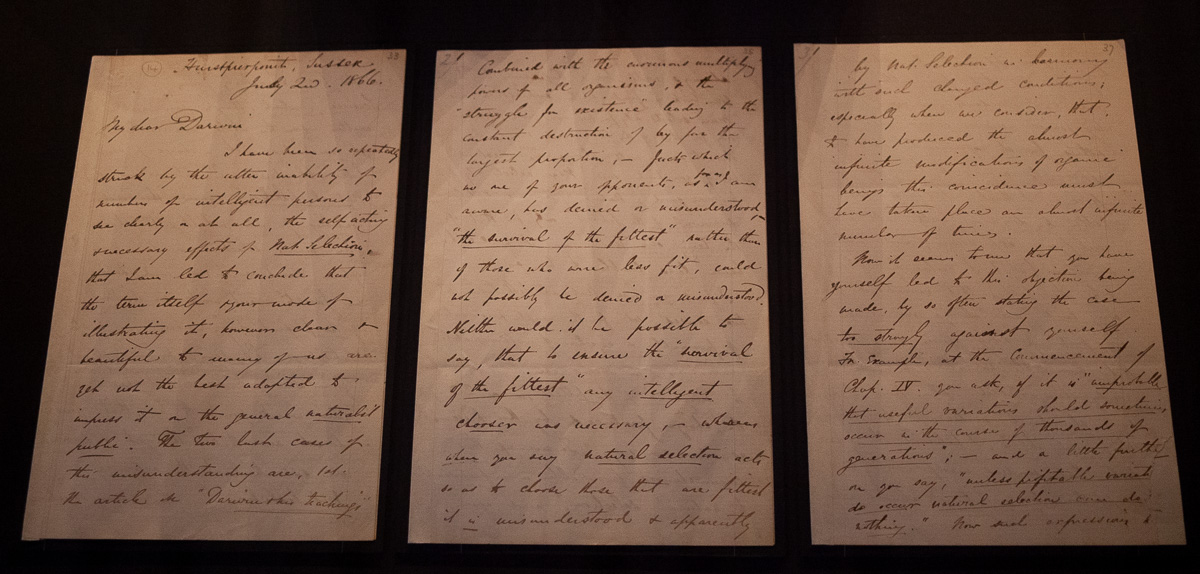 33
Hurstpierpoint, Sussex
July 2nd. 1866.
My dear Darwin
I have been so repeatedly
struck by the utter inability of
numbers of intelligent persons to
see clearly or at all, the self acting
& necessary effects of Nat Selection,
that I am led to conclude that
the term itself & your mode of
illustrating it, however clear &
beautiful to many of us are
yet not the best adapted to
impress it on the general naturalist
public. The two last cases of
this misunderstanding are, 1st.
the article on "Darwin & his teachings"
2/
Combined with the enormous multiplying
powers of all organisms, & the
"struggle for existence" leading to the
constant destruction of by far the
largest proportion, — facts which
no one of your opponents, as far as I am
aware, has denied or misunderstood,—
"the survival of the fittest" rather than
of those who were less fit, could
not possibly be denied or misunderstood.
Neither would it be possible to
say, that to ensure the "survival
of the fittest" any intelligent
chooser was necessary, — whereas
when you say natural selection acts
so as to choose those that are fittest
it is misunderstood & apparently
3/
37
by Nat. Selection in harmony
with such changed conditions;
especially when we consider, that,
to have produced the almost
infinite modifications of organic
beings this coincidence must
have taken place an almost infinite
number of times.
Now it seems to me that you have
yourself led to this objection being
made, by so often stating the case
too strongly against yourself.
For Example, at the Commencement of
Chap. IV. you ask, if it is "improbable
that useful variations should sometimes
occur in the course of thousands of
generations"; — and a little further
on you say, "unless profitable variations
do occur natural selection can do
nothing." Now such expressions